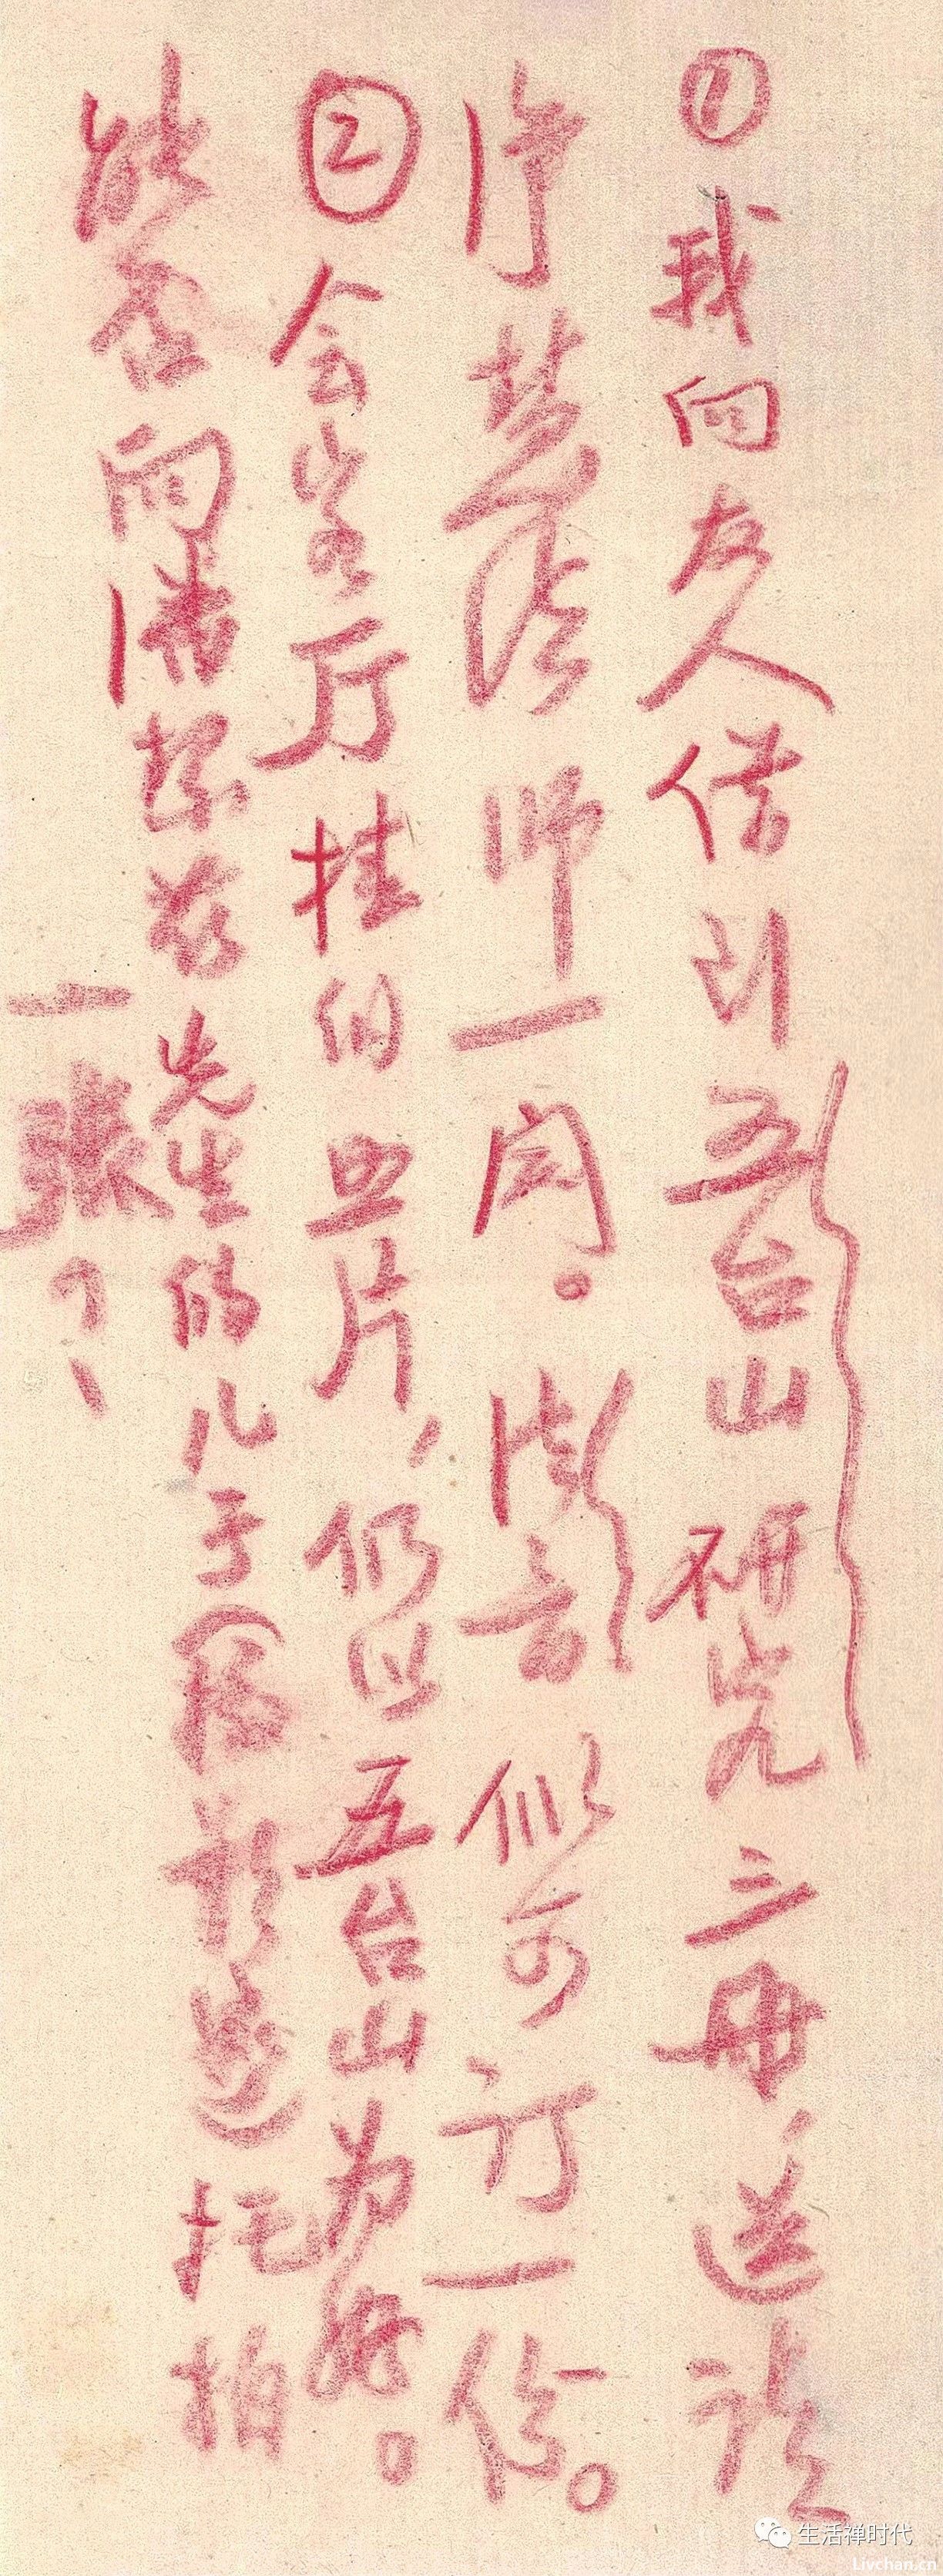 ① 我向友人借到五台山研究三册，送请
净慧法师一阅。法音似可订一份。
② 会客厅挂的照片，仍以五台山为好。
能否向潘絜兹先生的儿子（搞彩色）托拍
一张？
生活禅时代
Livchan.cn